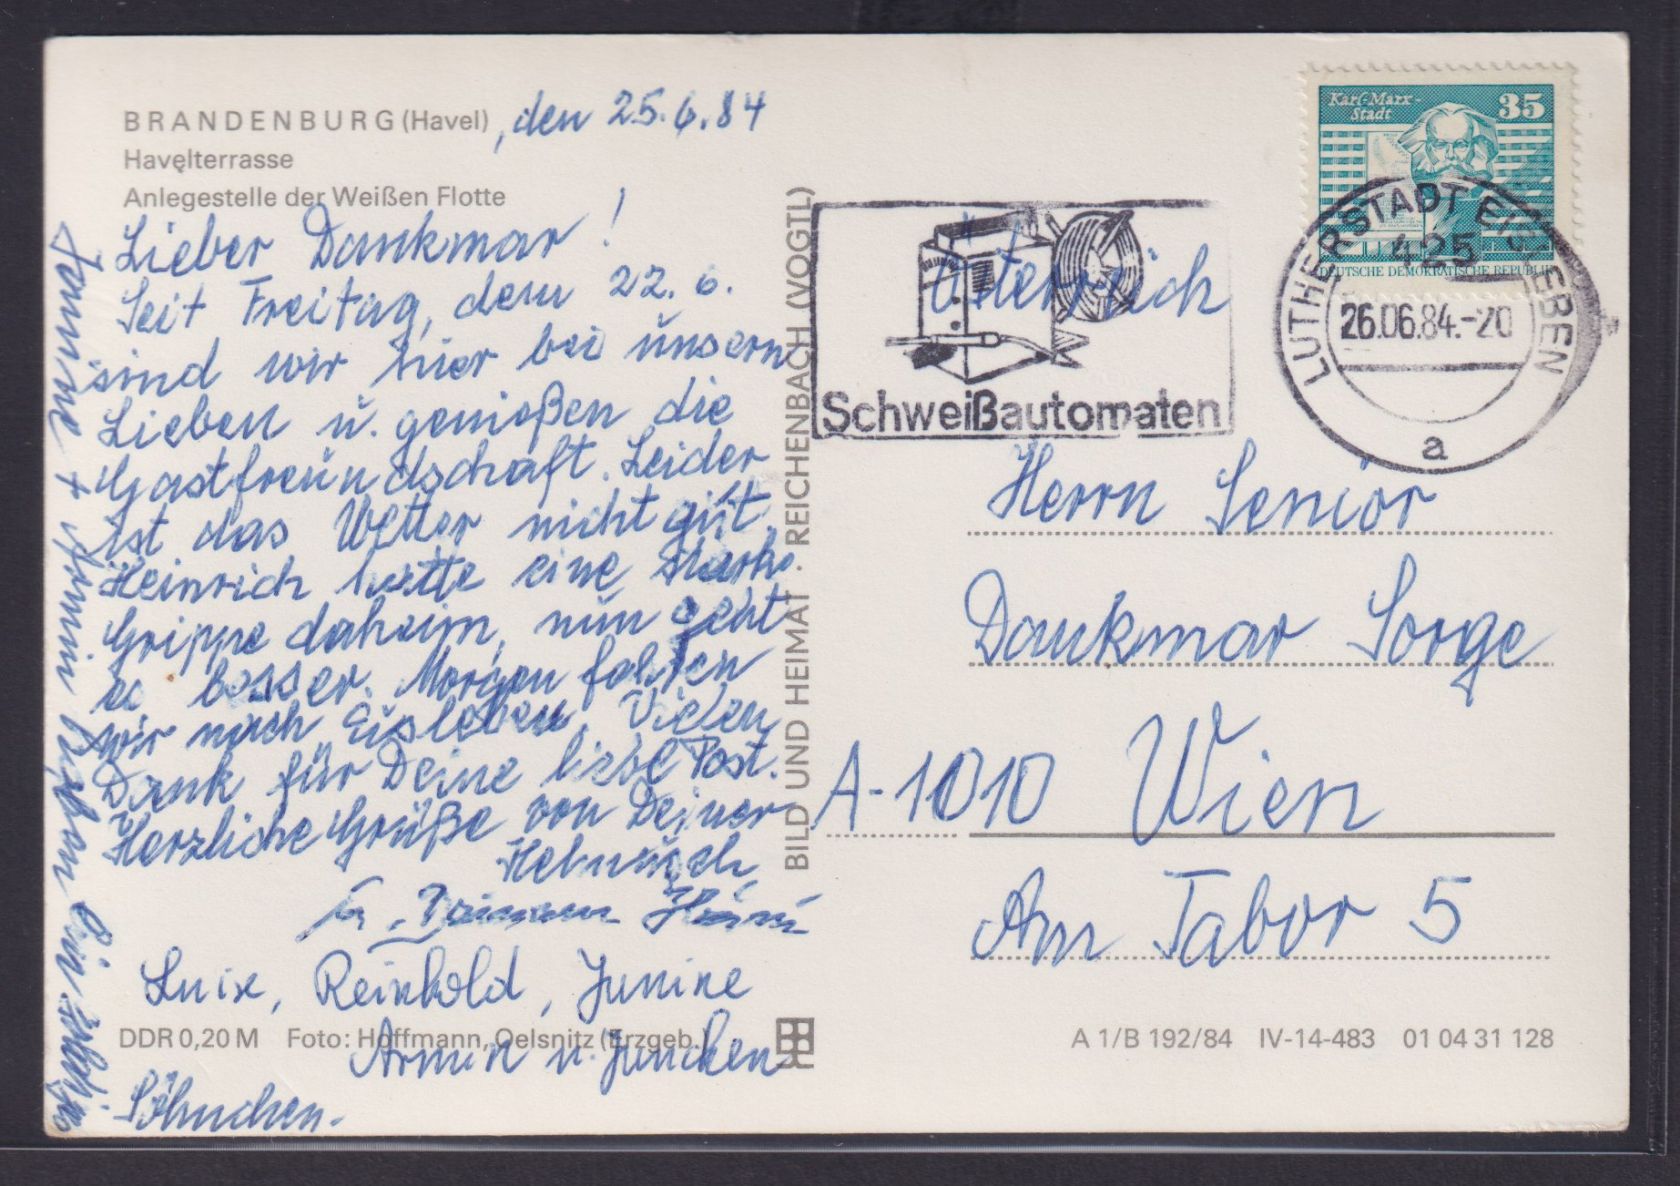 BRANDENBURG (Havel) , den 25.6.84
Havelterrasse
Anlegestelle der Weißen Flotte
Lieber Dankmar!
Seit Freitag, dem 22. 6.
sind wir hier bei unsern
Lieben u. genießen die
Gastfreundschaft. Leider
ist das Wetter nicht gut.
Heinrich hatte eine starke
Grippe daheim, nun geht
es besser. Morgen fahren
wir nach Eisleben. Vielen
Dank für Deine liebe Post.
Herzliche Grüße von Deiner
Luise, Reinhold, Janine
Armin u.
Söhnchen.
Janine + Armin haben ein
DDR 0,20 M Foto: Hoffmann, Oelsnitz (Erzgeb.)
BILD UND HEIMAT · REICHENBACH (VOGTL)
Karl-Marx-
Stadt
35
DEUTSCHE DEMOKRATISCHE REPUBLIK
LUTHERSTADT EISLEBEN
425
26.06.84.-20
a
Schweißautomaten
Österreich
Herrn Senior
Dankmar Sorge
A-1010 Wien
Am Tabor 5
A 1/B 192/84 IV-14-483 01 04 31 128